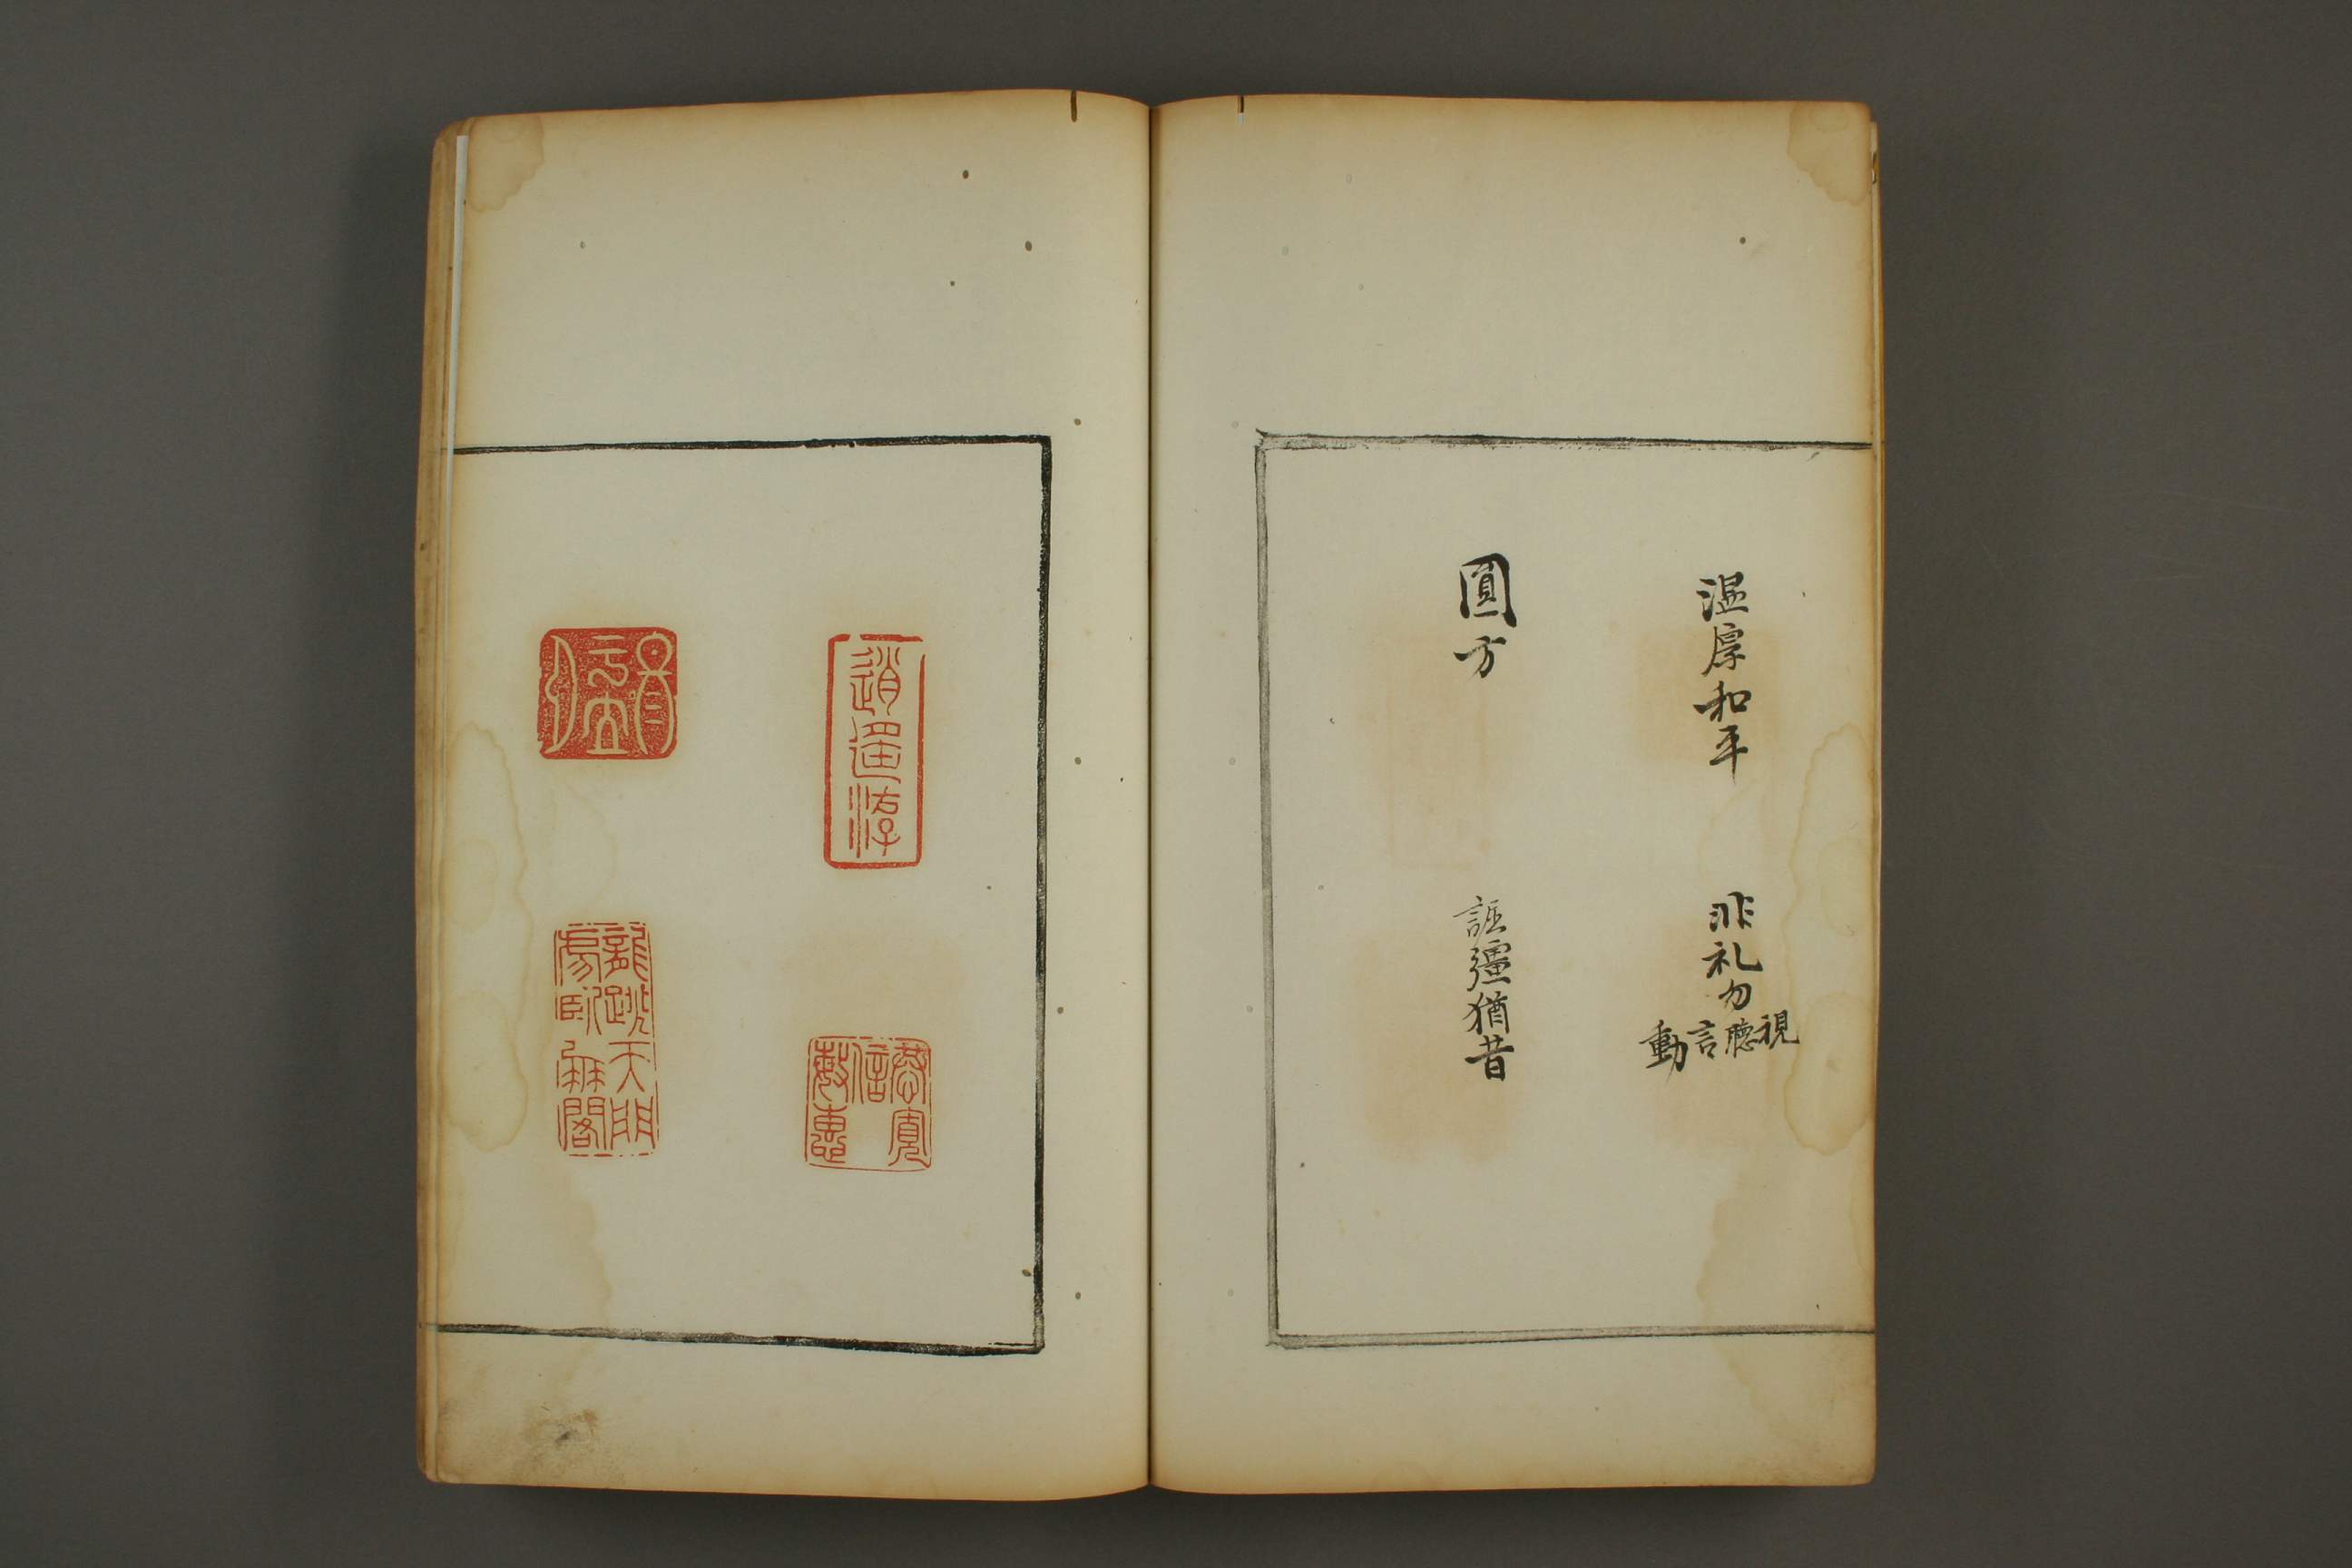 温厚和平
非礼勿視聴言動
圓方
彊猶昔
逍遥游
恭寬信敏惠
龍跳天門
虎臥鳳閣